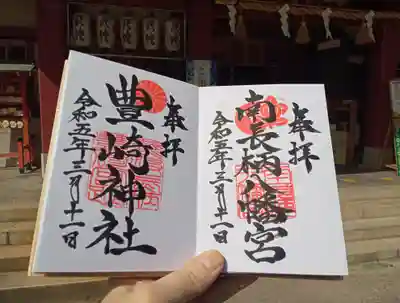 奉拝
南長柄八幡宮
令和五年三月十一日
奉拝
豊崎神社
令和五年三月十一日